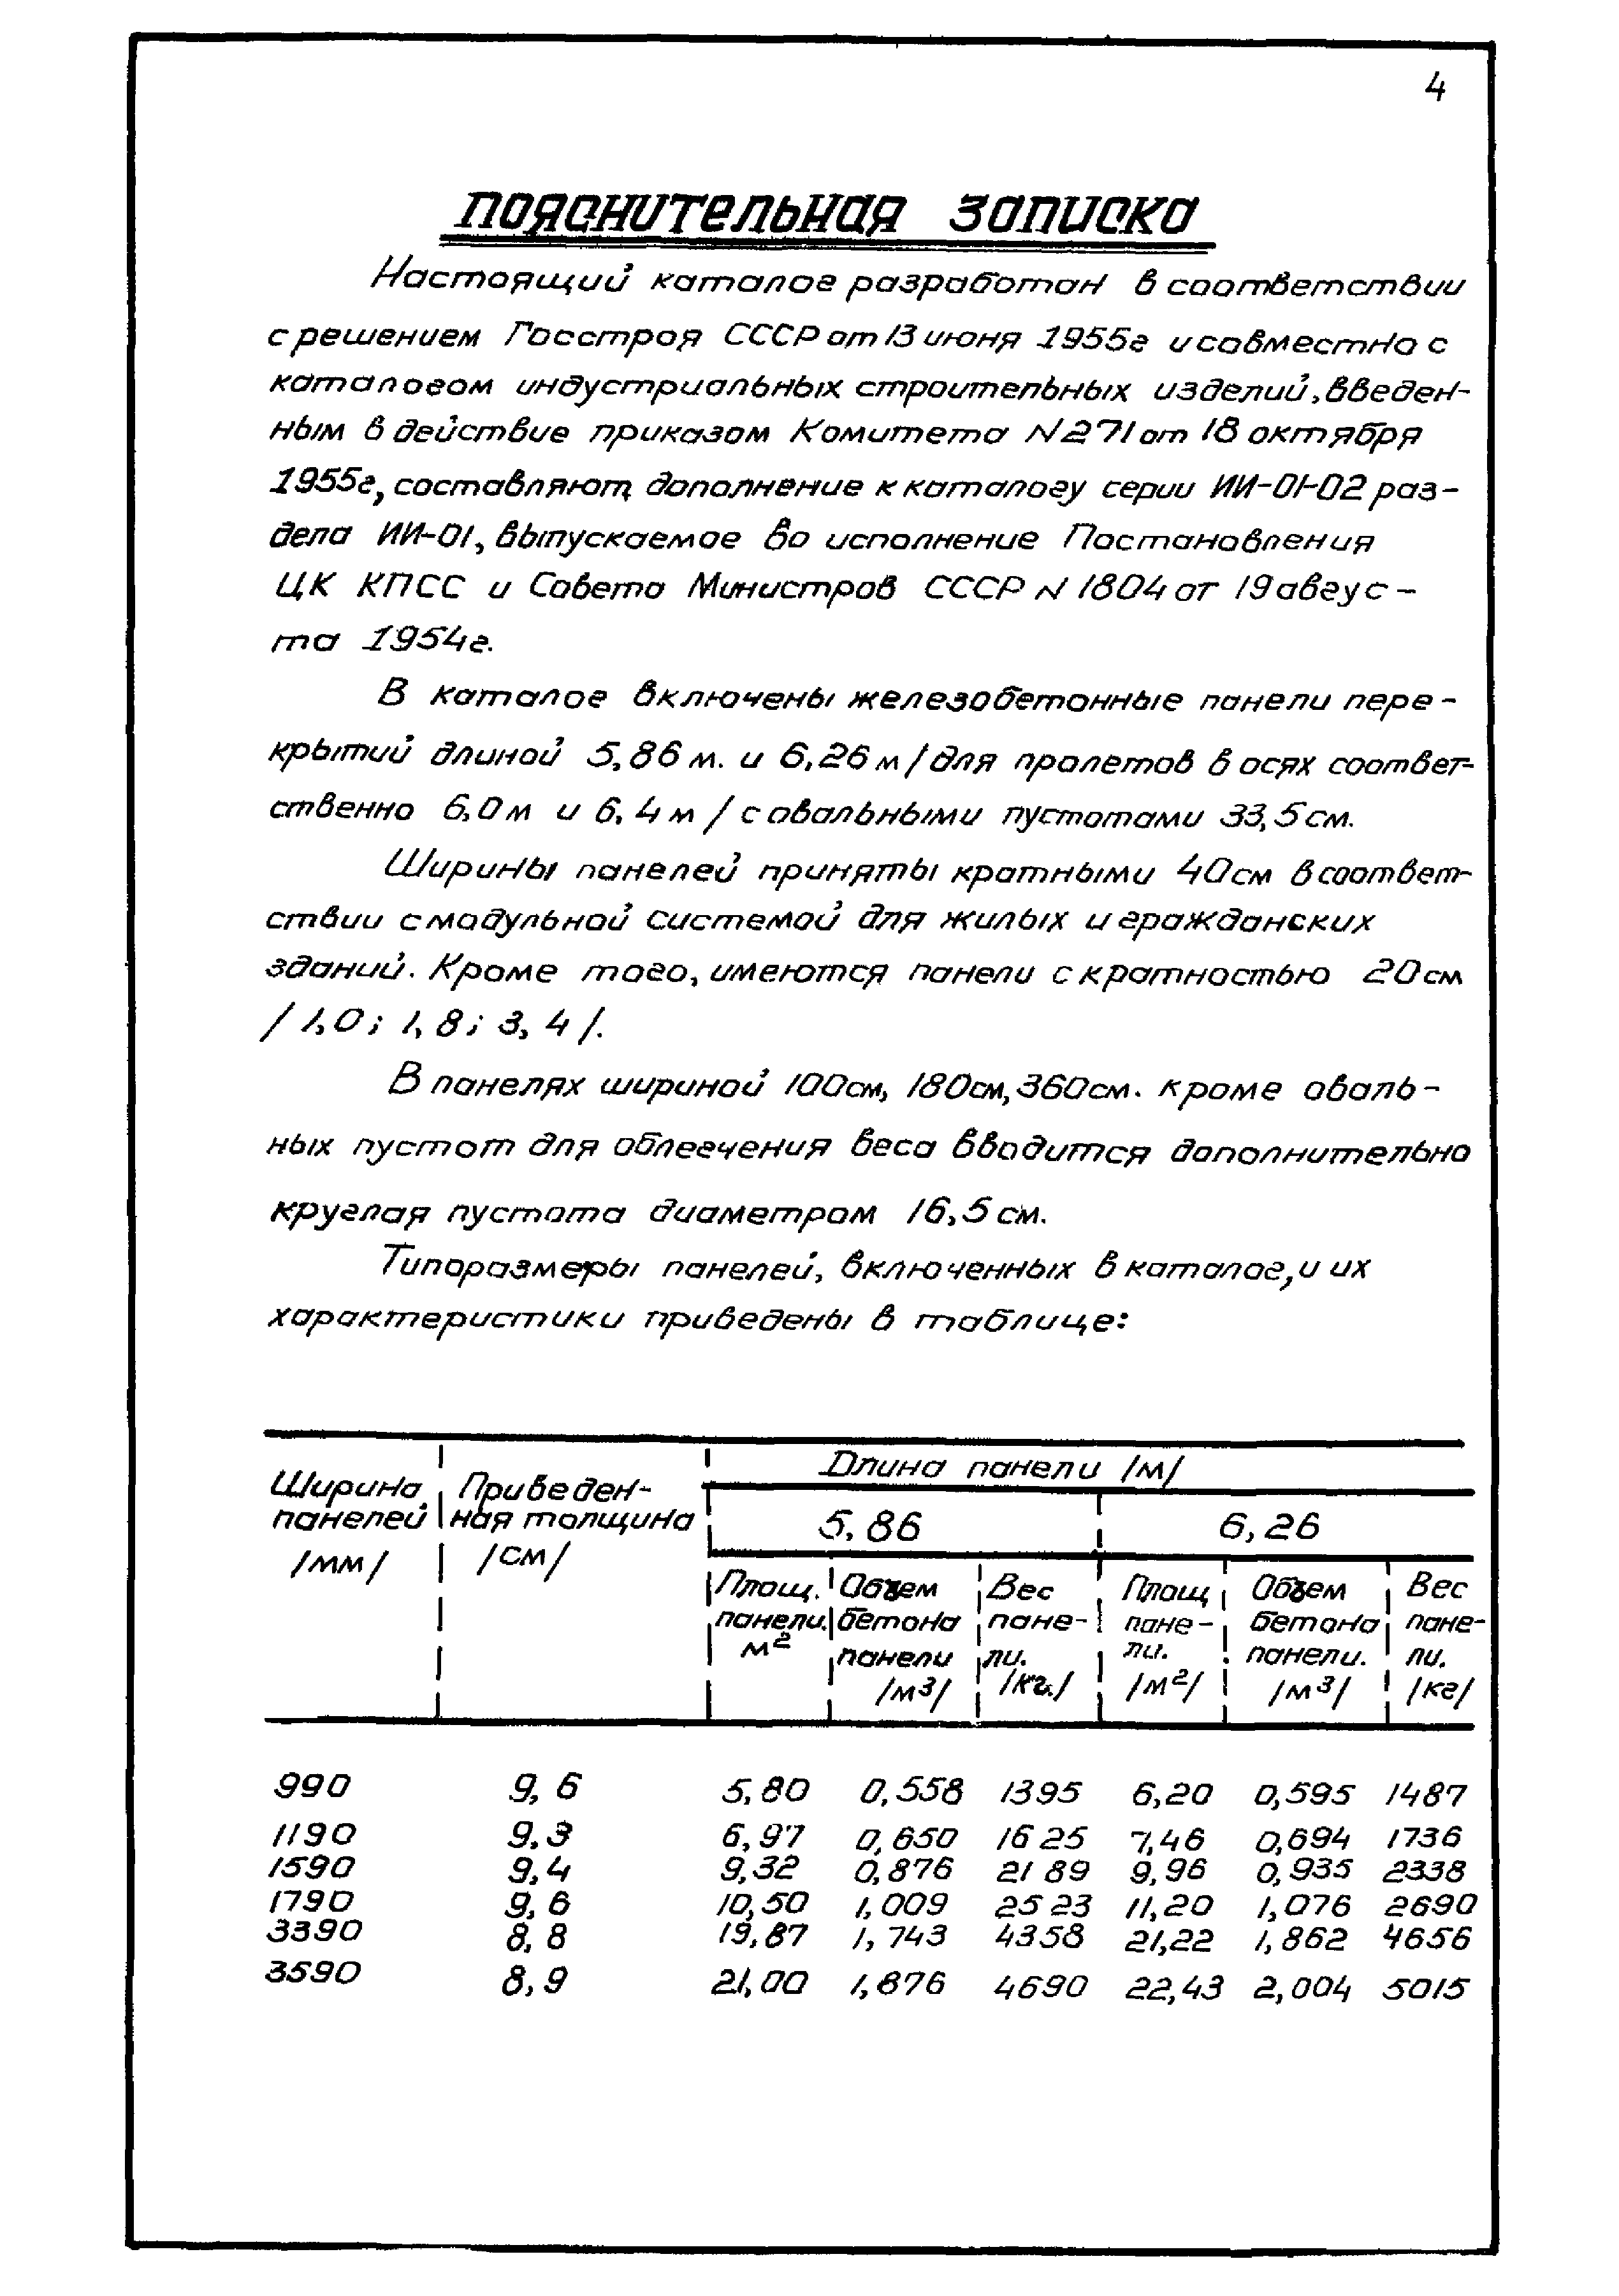 4
ПОЯСНИТЕЛЬНАЯ ЗАПИСКА
Настоящий каталог разработан в соответствии
с решением Госстроя СССР от 13 июня 1955г и совместно с
каталогом индустриальных строительных изделий, введен-
ным в действие приказом Комитета N271 от 18 октября
1955г, составляют дополнение к каталогу серии ИИ-01-02 раз-
дела ИИ-01, выпускаемое во исполнение Постановления
ЦК КПСС и Совета Министров СССР N 1804 от 19 авгус-
та 1954г.
В каталог включены железобетонные панели пере-
крытий длиной 5,86 м. и 6,26 м /для пролетов в осях соответ-
ственно 6,0 м и 6,4 м / с овальными пустотами 33,5 см.
Ширины панелей приняты кратными 40 см в соответ-
ствии с модульной системой для жилых и гражданских
зданий. Кроме того, имеются панели с кратностью 20 см
/ 1,0; 1,8; 3,4 /.
В панелях шириной 100см, 180см, 360см. кроме оваль-
ных пустот для облегчения веса вводится дополнительно
круглая пустота диаметром 16,5 см.
Типоразмеры панелей, включенных в каталог, и их
характеристики приведены в таблице:
Ширина панелей /мм/ Приведен- ная толщина /см/ Длина панели /м/
5,86 6,26
Площ. панели. м² Объем бетона панели /м³/ Вес пане- ли. /кг./ Площ пане- ли. /м²/ Объем бетона панели. /м³/ Вес пане- ли. /кг/
990 9,6 5,80 0,558 1395 6,20 0,595 1487
1190 9,3 6,97 0,650 1625 7,46 0,694 1736
1590 9,4 9,32 0,876 2189 9,96 0,935 2338
1790 9,6 10,50 1,009 2523 11,20 1,076 2690
3390 8,8 19,87 1,743 4358 21,22 1,862 4656
3590 8,9 21,00 1,876 4690 22,43 2,004 5015